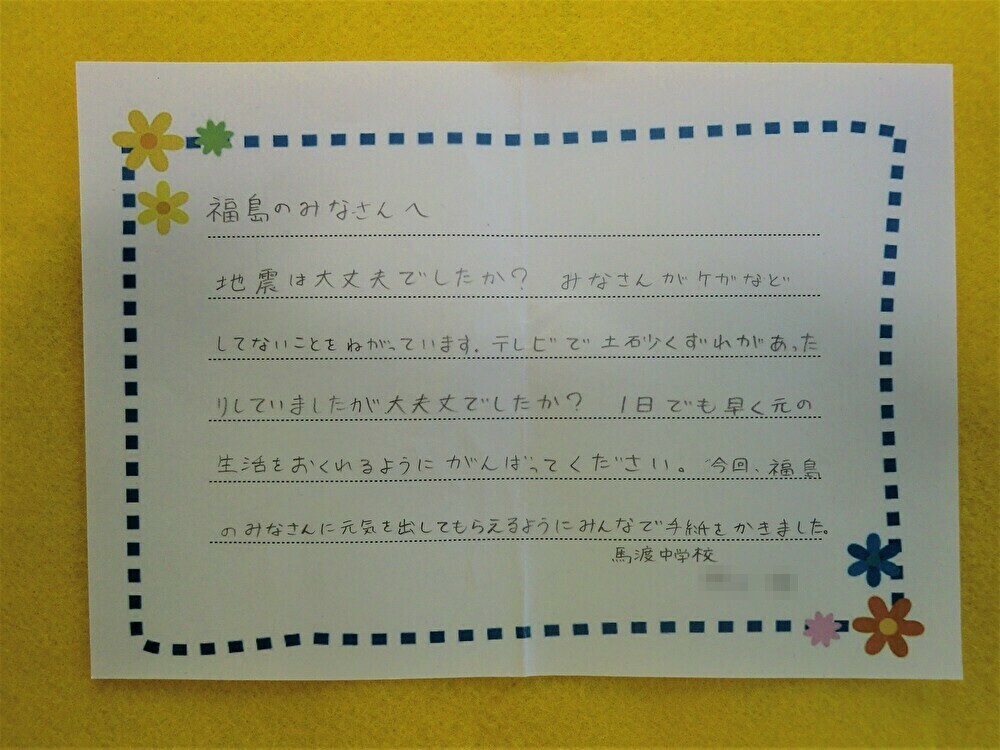 福島のみなさんへ
地震は大丈夫でしたか? みなさんがケガなど
してないことをねがっています。テレビで土砂くずれがあった
りしていましたが大夫丈でしたか? 1日でも早く元の
生活をおくれるようにがんばってください。今回、福島
のみなさんに元気を出してもらえるようにみんなで手紙をかきました。
馬渡中学校